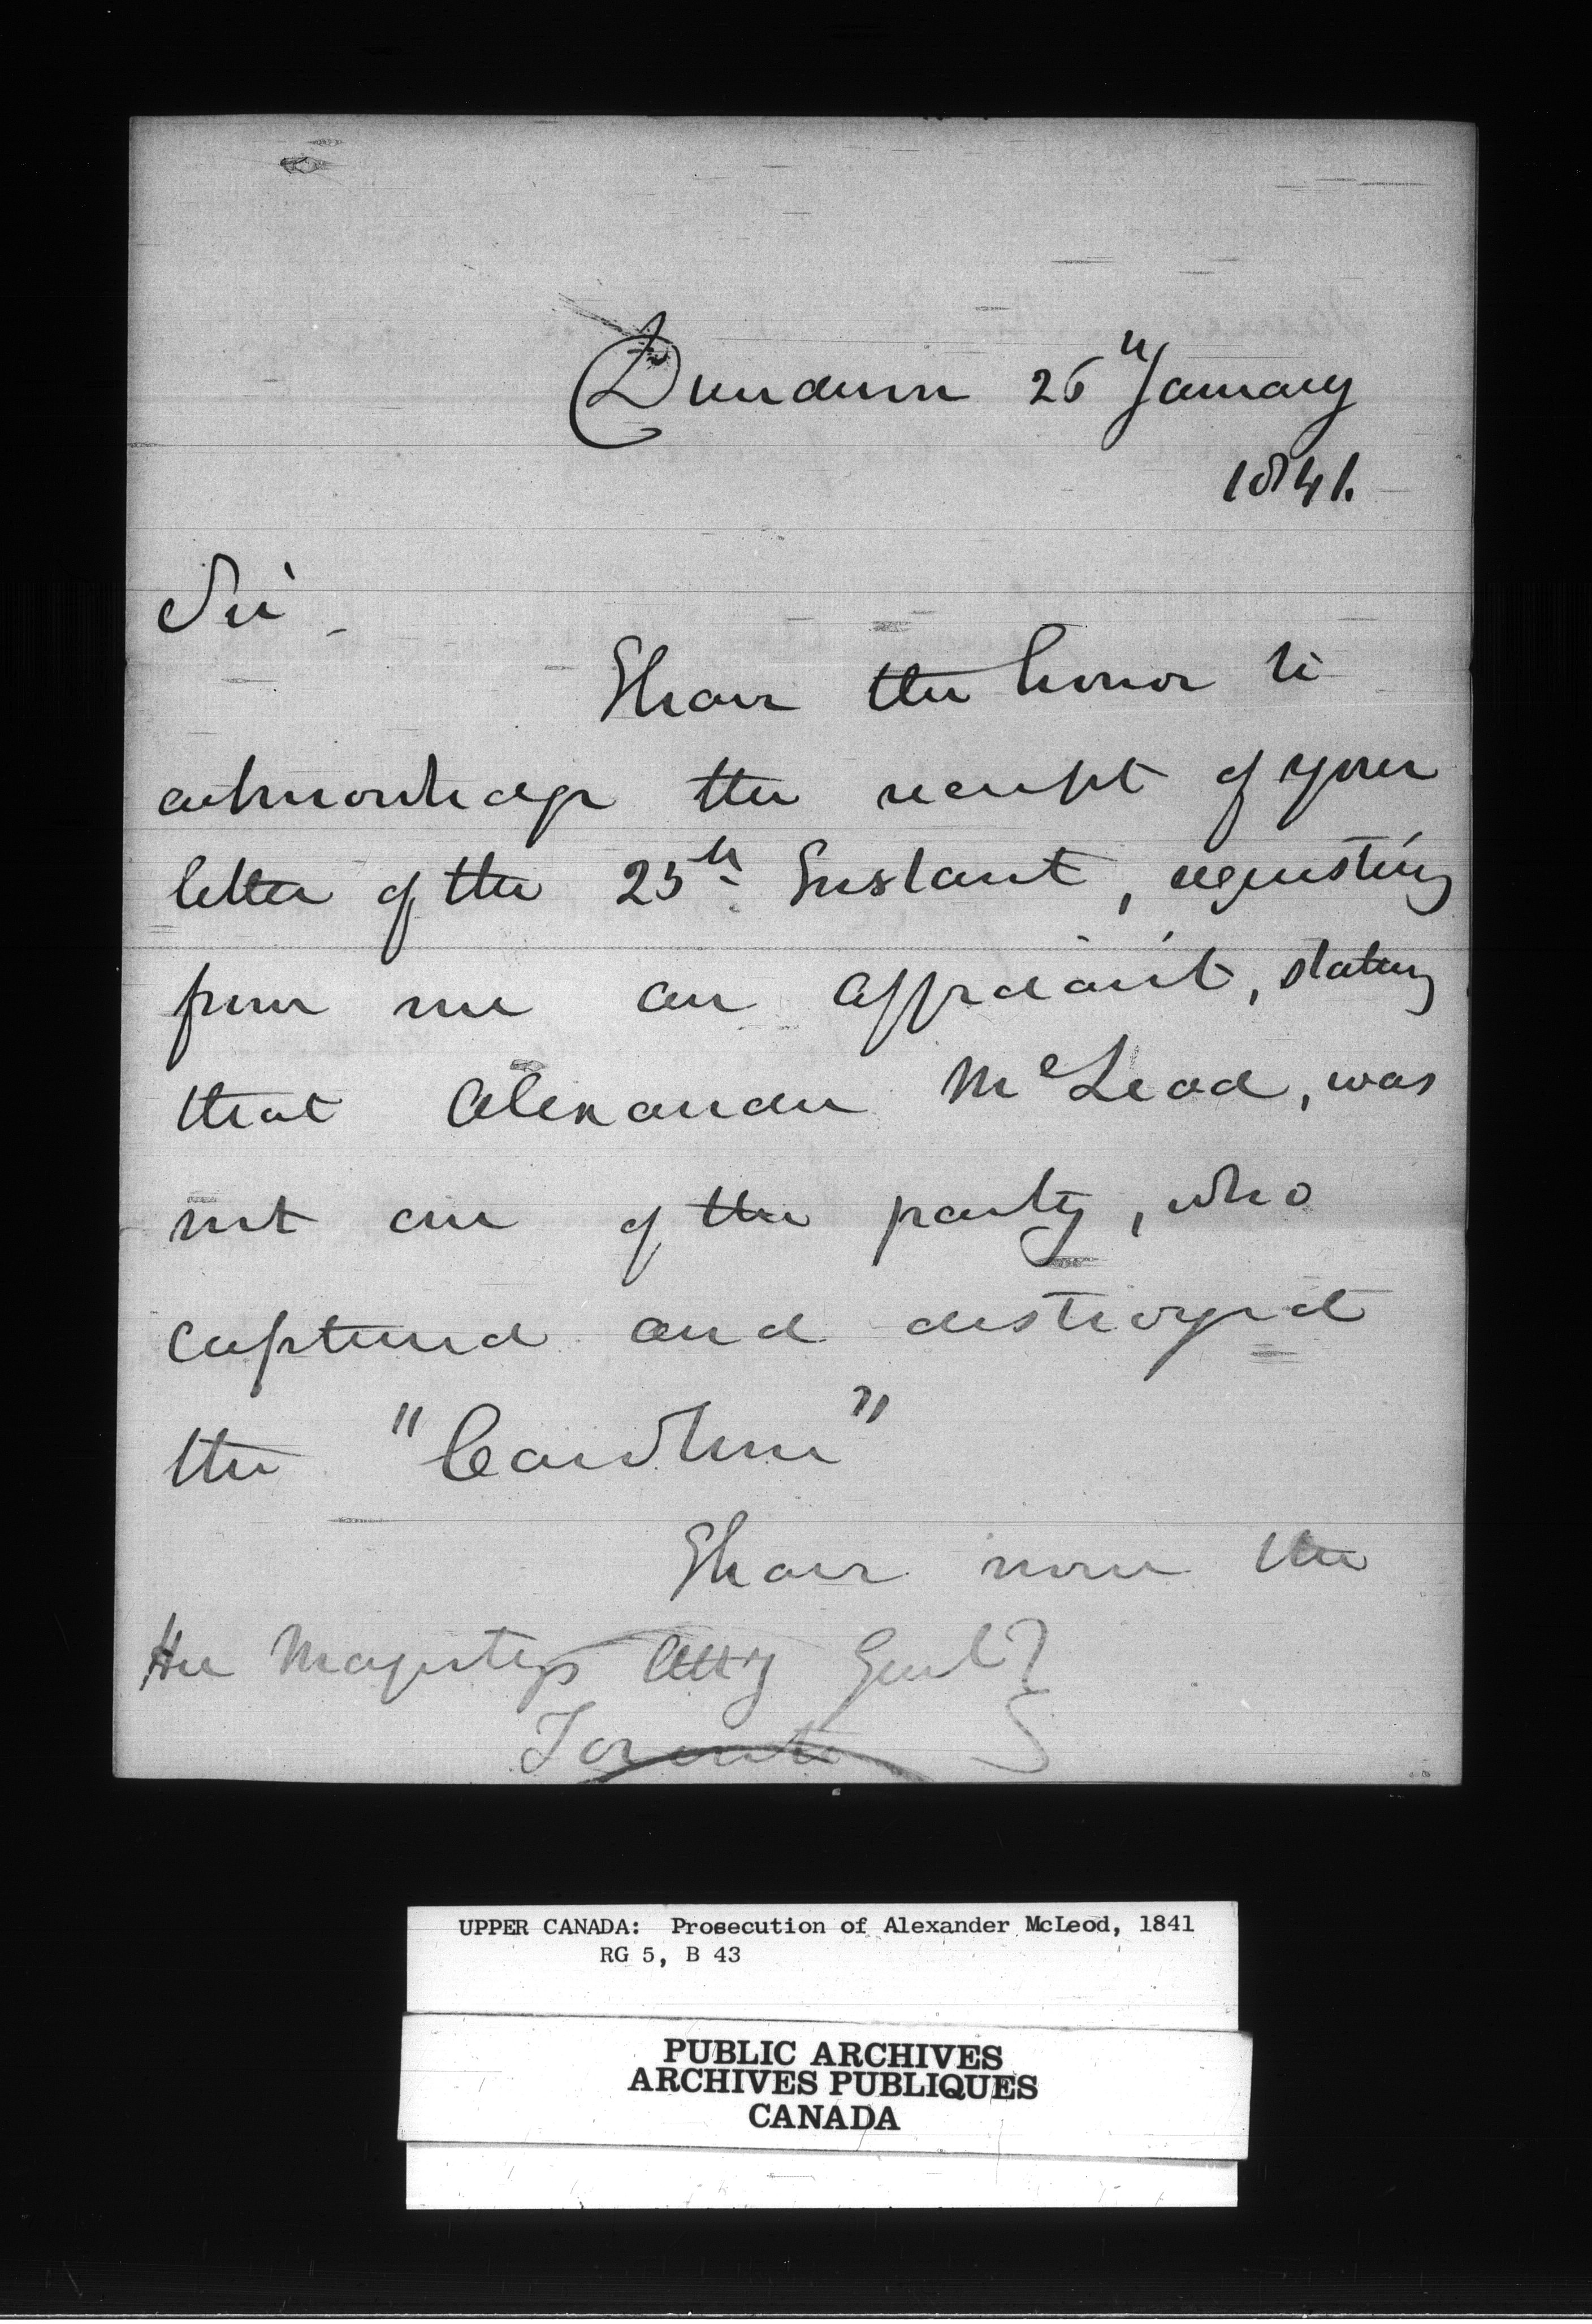 Dundurn 26th January
1841.
Sir
I have the honor to
acknowledge the receipt of your
letter of the 25th Instant, requesting
from me an affidavit, stating
that Alexander McLeod, was
not one of the party, who
captured and destroyed
the "Caroline"
I have now the
Her Majestys Atty Genl
Toronto
UPPER CANADA: Prosecution of Alexander McLeod, 1841
RG 5, B 43
PUBLIC ARCHIVES
ARCHIVES PUBLIQUES
CANADA